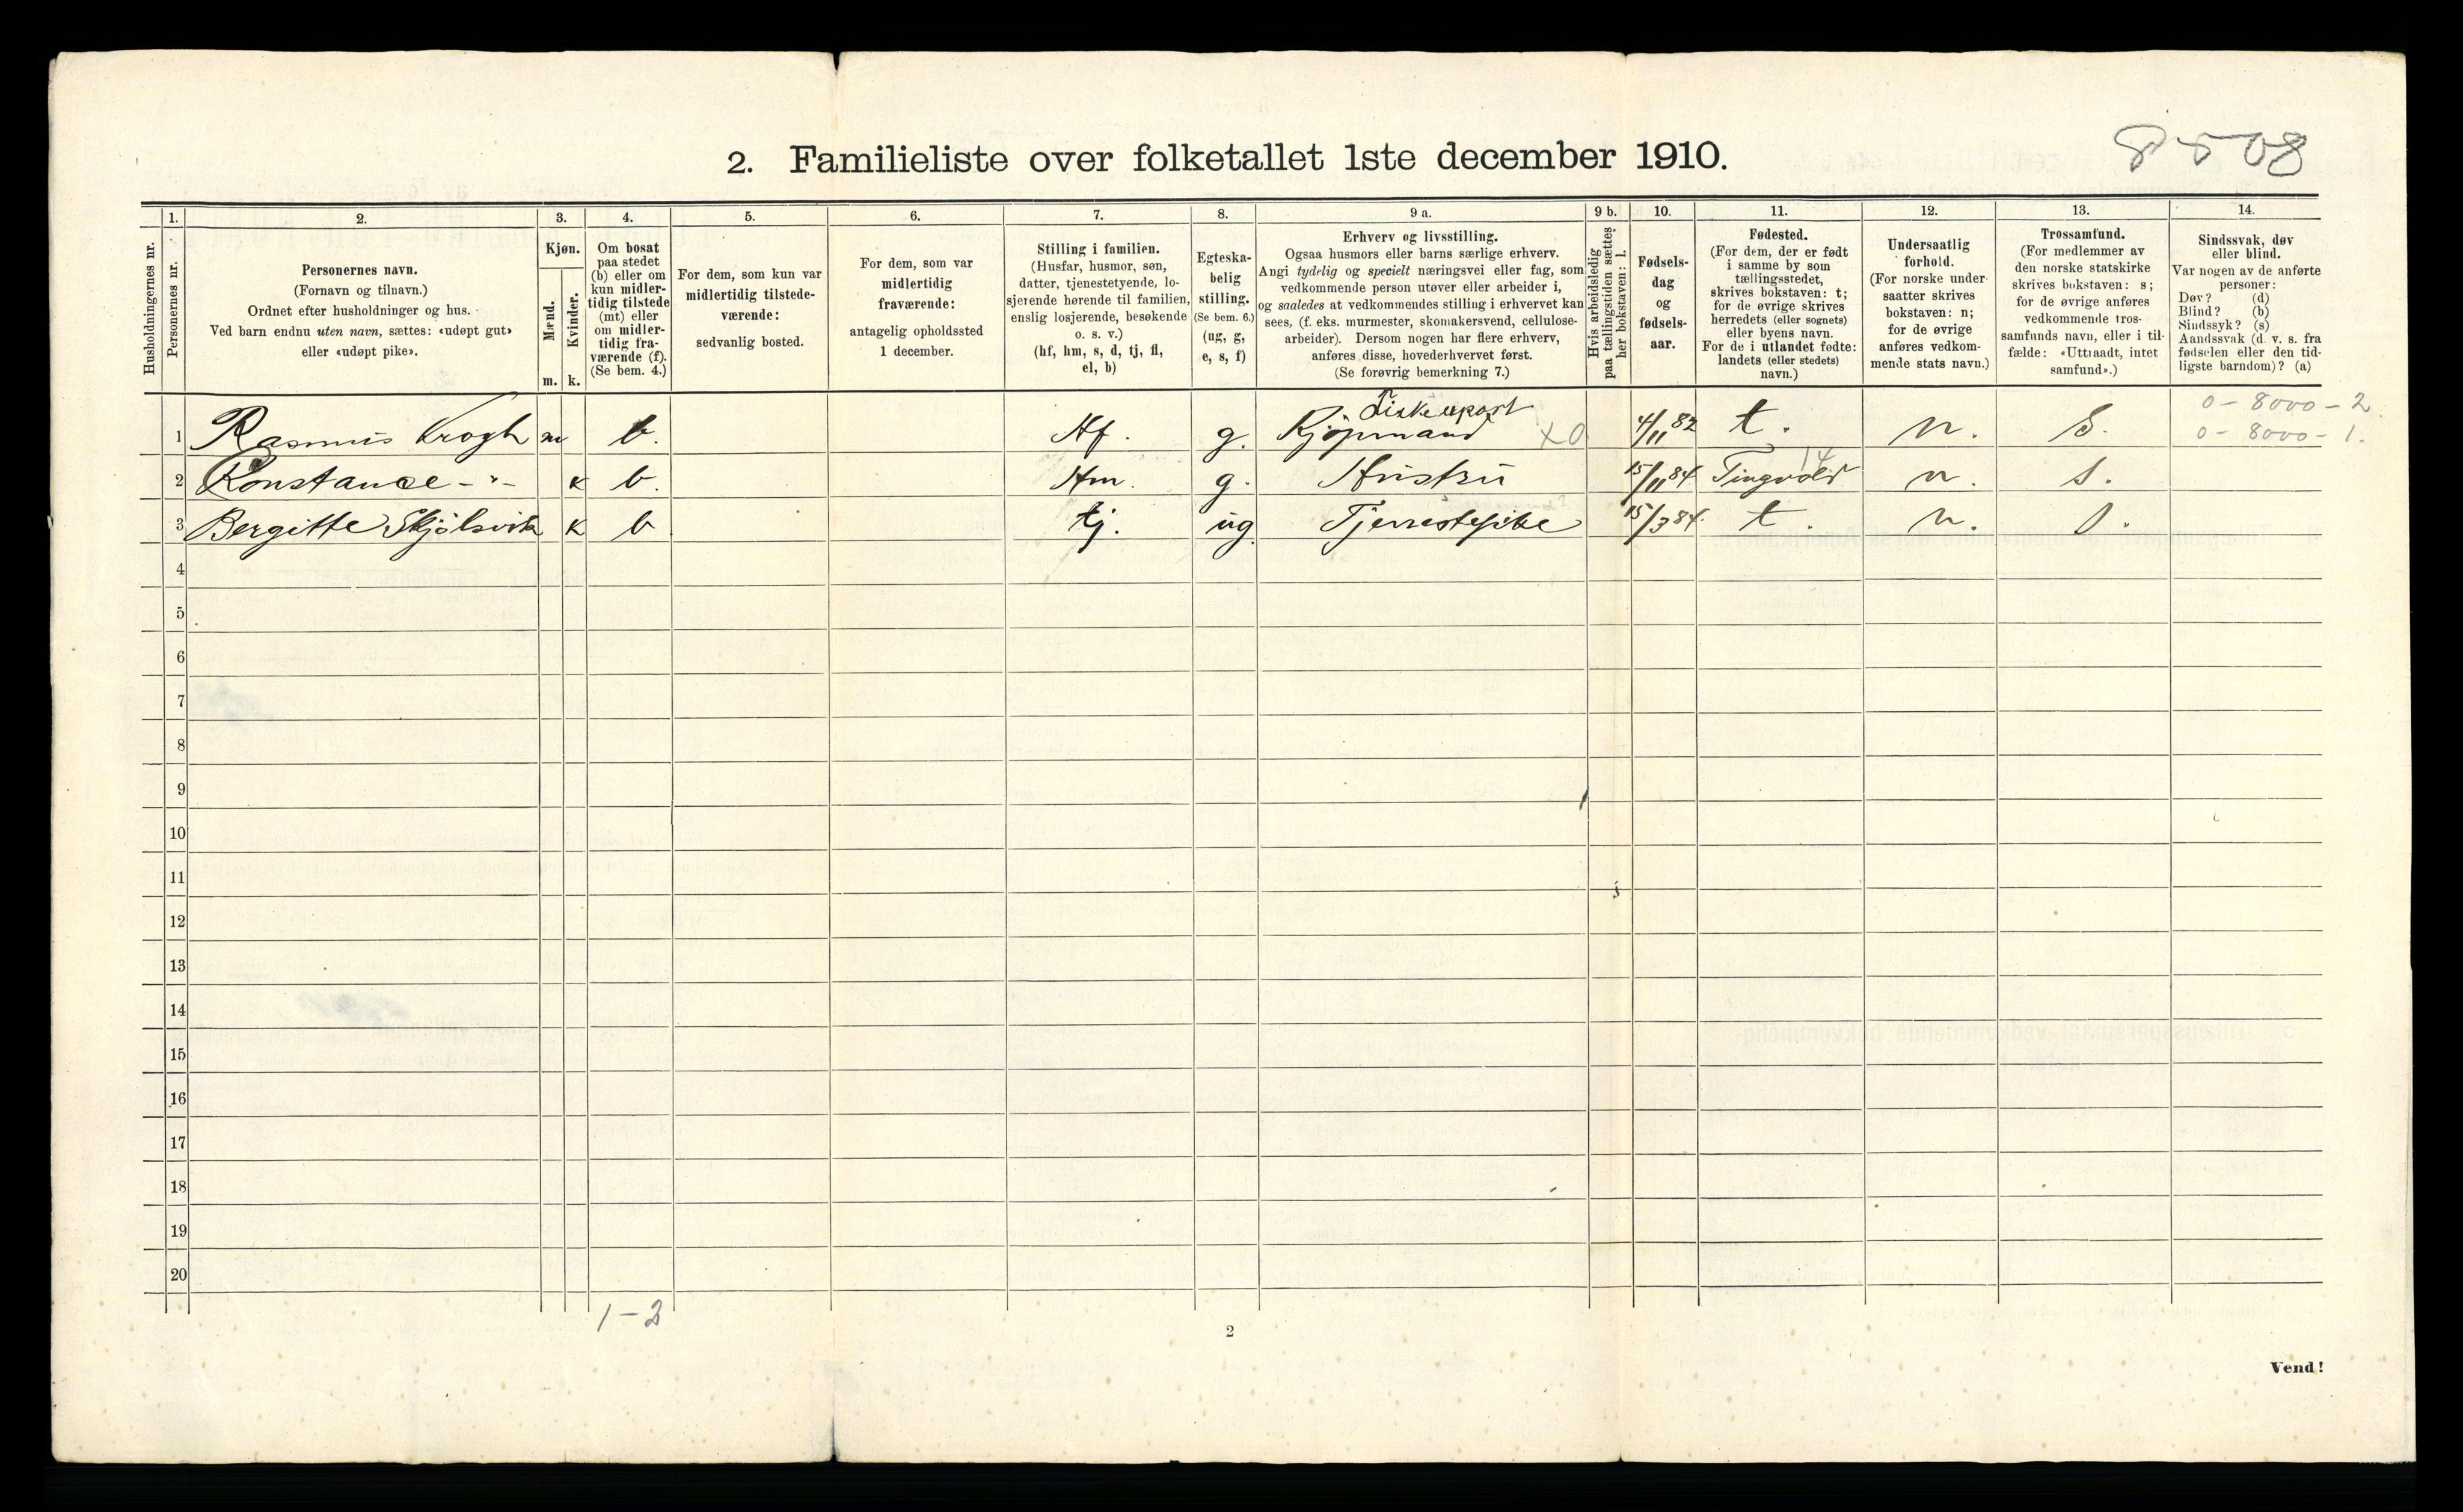 8508
2. Familieliste over folketallet 1ste december 1910.
Husholdningernes nr.
1.
Personernes nr.
2.
Personernes navn.
(Fornavn og tilnavn.)
Ordnet efter husholdninger og hus.
Ved barn endnu uten navn, sættes: «udøpt gut»
eller «udøpt pike».
3.
Kjøn.
Mænd.
Kvinder.
m. k.
4.
Om bosat
paa stedet
(b) eller om
kun midler-
tidig tilstede
(mt) eller
om midler-
tidig fra-
værende (f).
(Se bem. 4.)
5.
For dem, som kun var
midlertidig tilstede-
værende:
sedvanlig bosted.
6.
For dem, som var
midlertidig
fraværende:
antagelig opholdssted
1 december.
7.
Stilling i familien.
(Husfar, husmor, søn,
datter, tjenestetyende, lo-
sjerende hørende til familien,
enslig losjerende, besøkende
o. s. v.)
(hf, hm, s, d, tj, fl,
el, b)
8.
Egteska-
belig
stilling.
(Se bem. 6.)
(ug, g,
e, s, f)
9 a.
Erhverv og livsstilling.
Ogsaa husmors eller barns særlige erhverv.
Angi tydelig og specielt næringsvei eller fag, som
vedkommende person utøver eller arbeider i,
og saaledes at vedkommendes stilling i erhvervet kan
sees, (f. eks. murmester, skomakersvend, cellulose-
arbeider). Dersom nogen har flere erhverv,
anføres disse, hovederhvervet først.
(Se forøvrig bemerkning 7.)
9 b.
Hvis arbeidsledig
paa tællingstiden sættes
her bokstaven: l.
10.
Fødsels-
dag
og
fødsels-
aar.
11.
Fødested.
(For dem, der er født
i samme by som
tællingsstedet,
skrives bokstaven: t;
for de øvrige skrives
herredets (eller sognets)
eller byens navn.
For de i utlandet fødte:
landets (eller stedets)
navn.)
12.
Undersaatlig
forhold.
(For norske under-
saatter skrives
bokstaven: n;
for de øvrige
anføres vedkom-
mende stats navn.)
13.
Trossamfund.
(For medlemmer av
den norske statskirke
skrives bokstaven: s;
for de øvrige anføres
vedkommende tros-
samfunds navn, eller i til-
fælde: «Uttraadt, intet
samfund».)
14.
Sindssvak, døv
eller blind.
Var nogen av de anførte
personer:
Døv? (d)
Blind? (b)
Sindssyk? (s)
Aandssvak (d. v. s. fra
fødselen eller den tid-
ligste barndom)? (a)
Fiskexport 0-8000-2.
1 Rasmus Krogh m b. Hf. g. Kjøpmand x0 4/11 82 t. n. S. 0-8000-1.
14
2 Konstance -"- k b. Hm. g. Hustru 15/11 84 Tingvold n. s.
3 Bergitte Skjølsvik k b tj. ug. Tjenestepike 15/3 84. t. n. s.
4
5
6
7
8
9
10
11
12
13
14
15
16
17
18
19
20
1-2
2
Vend!